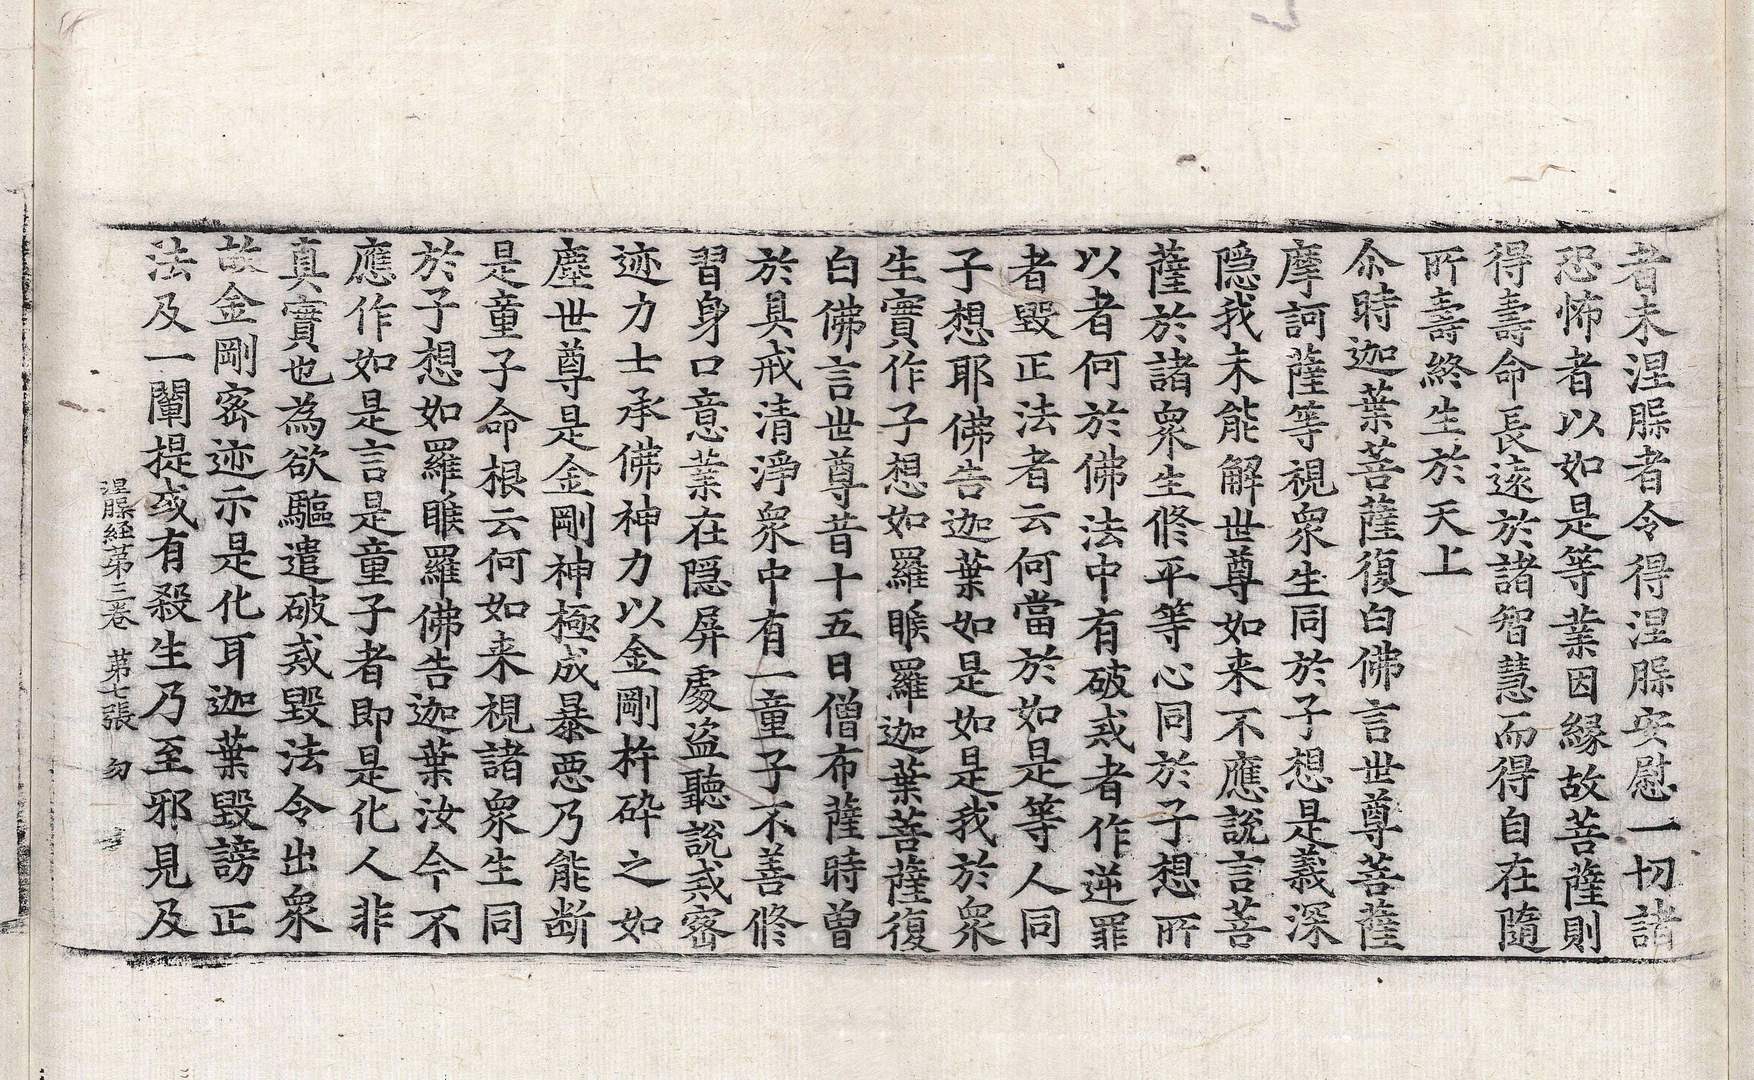 者未涅槃者令得涅槃安慰一切諸
恐怖者以如是等業因緣故菩薩則
得壽命長遠於諸智慧而得自在隨
所壽終生於天上
尒時迦葉菩薩復白佛言世尊菩薩
摩訶薩等視衆生同於子想是義深
隱我未能解世尊如来不應說言菩
薩於諸衆生修平等心同於子想所
以者何於佛法中有破戒者作逆罪
者毀正法者云何當於如是等人同
子想耶佛告迦葉如是如是我於衆
生實作子想如羅睺羅迦葉菩薩復
白佛言世尊昔十五日僧布薩時曾
於具戒清淨衆中有一童子不善修
習身口意業在隱屏處盜聽說戒密
迹力士承佛神力以金剛杵碎之如
塵世尊是金剛神極成暴惡乃能斷
是童子命根云何如来視諸衆生同
於子想如羅睺羅佛告迦葉汝今不
應作如是言是童子者即是化人非
真實也為欲驅遣破戒毀法令出衆
故金剛密迹示是化耳迦葉毀謗正
法及一闡提或有殺生乃至邪見及
涅槃經第三卷 第七張 勿